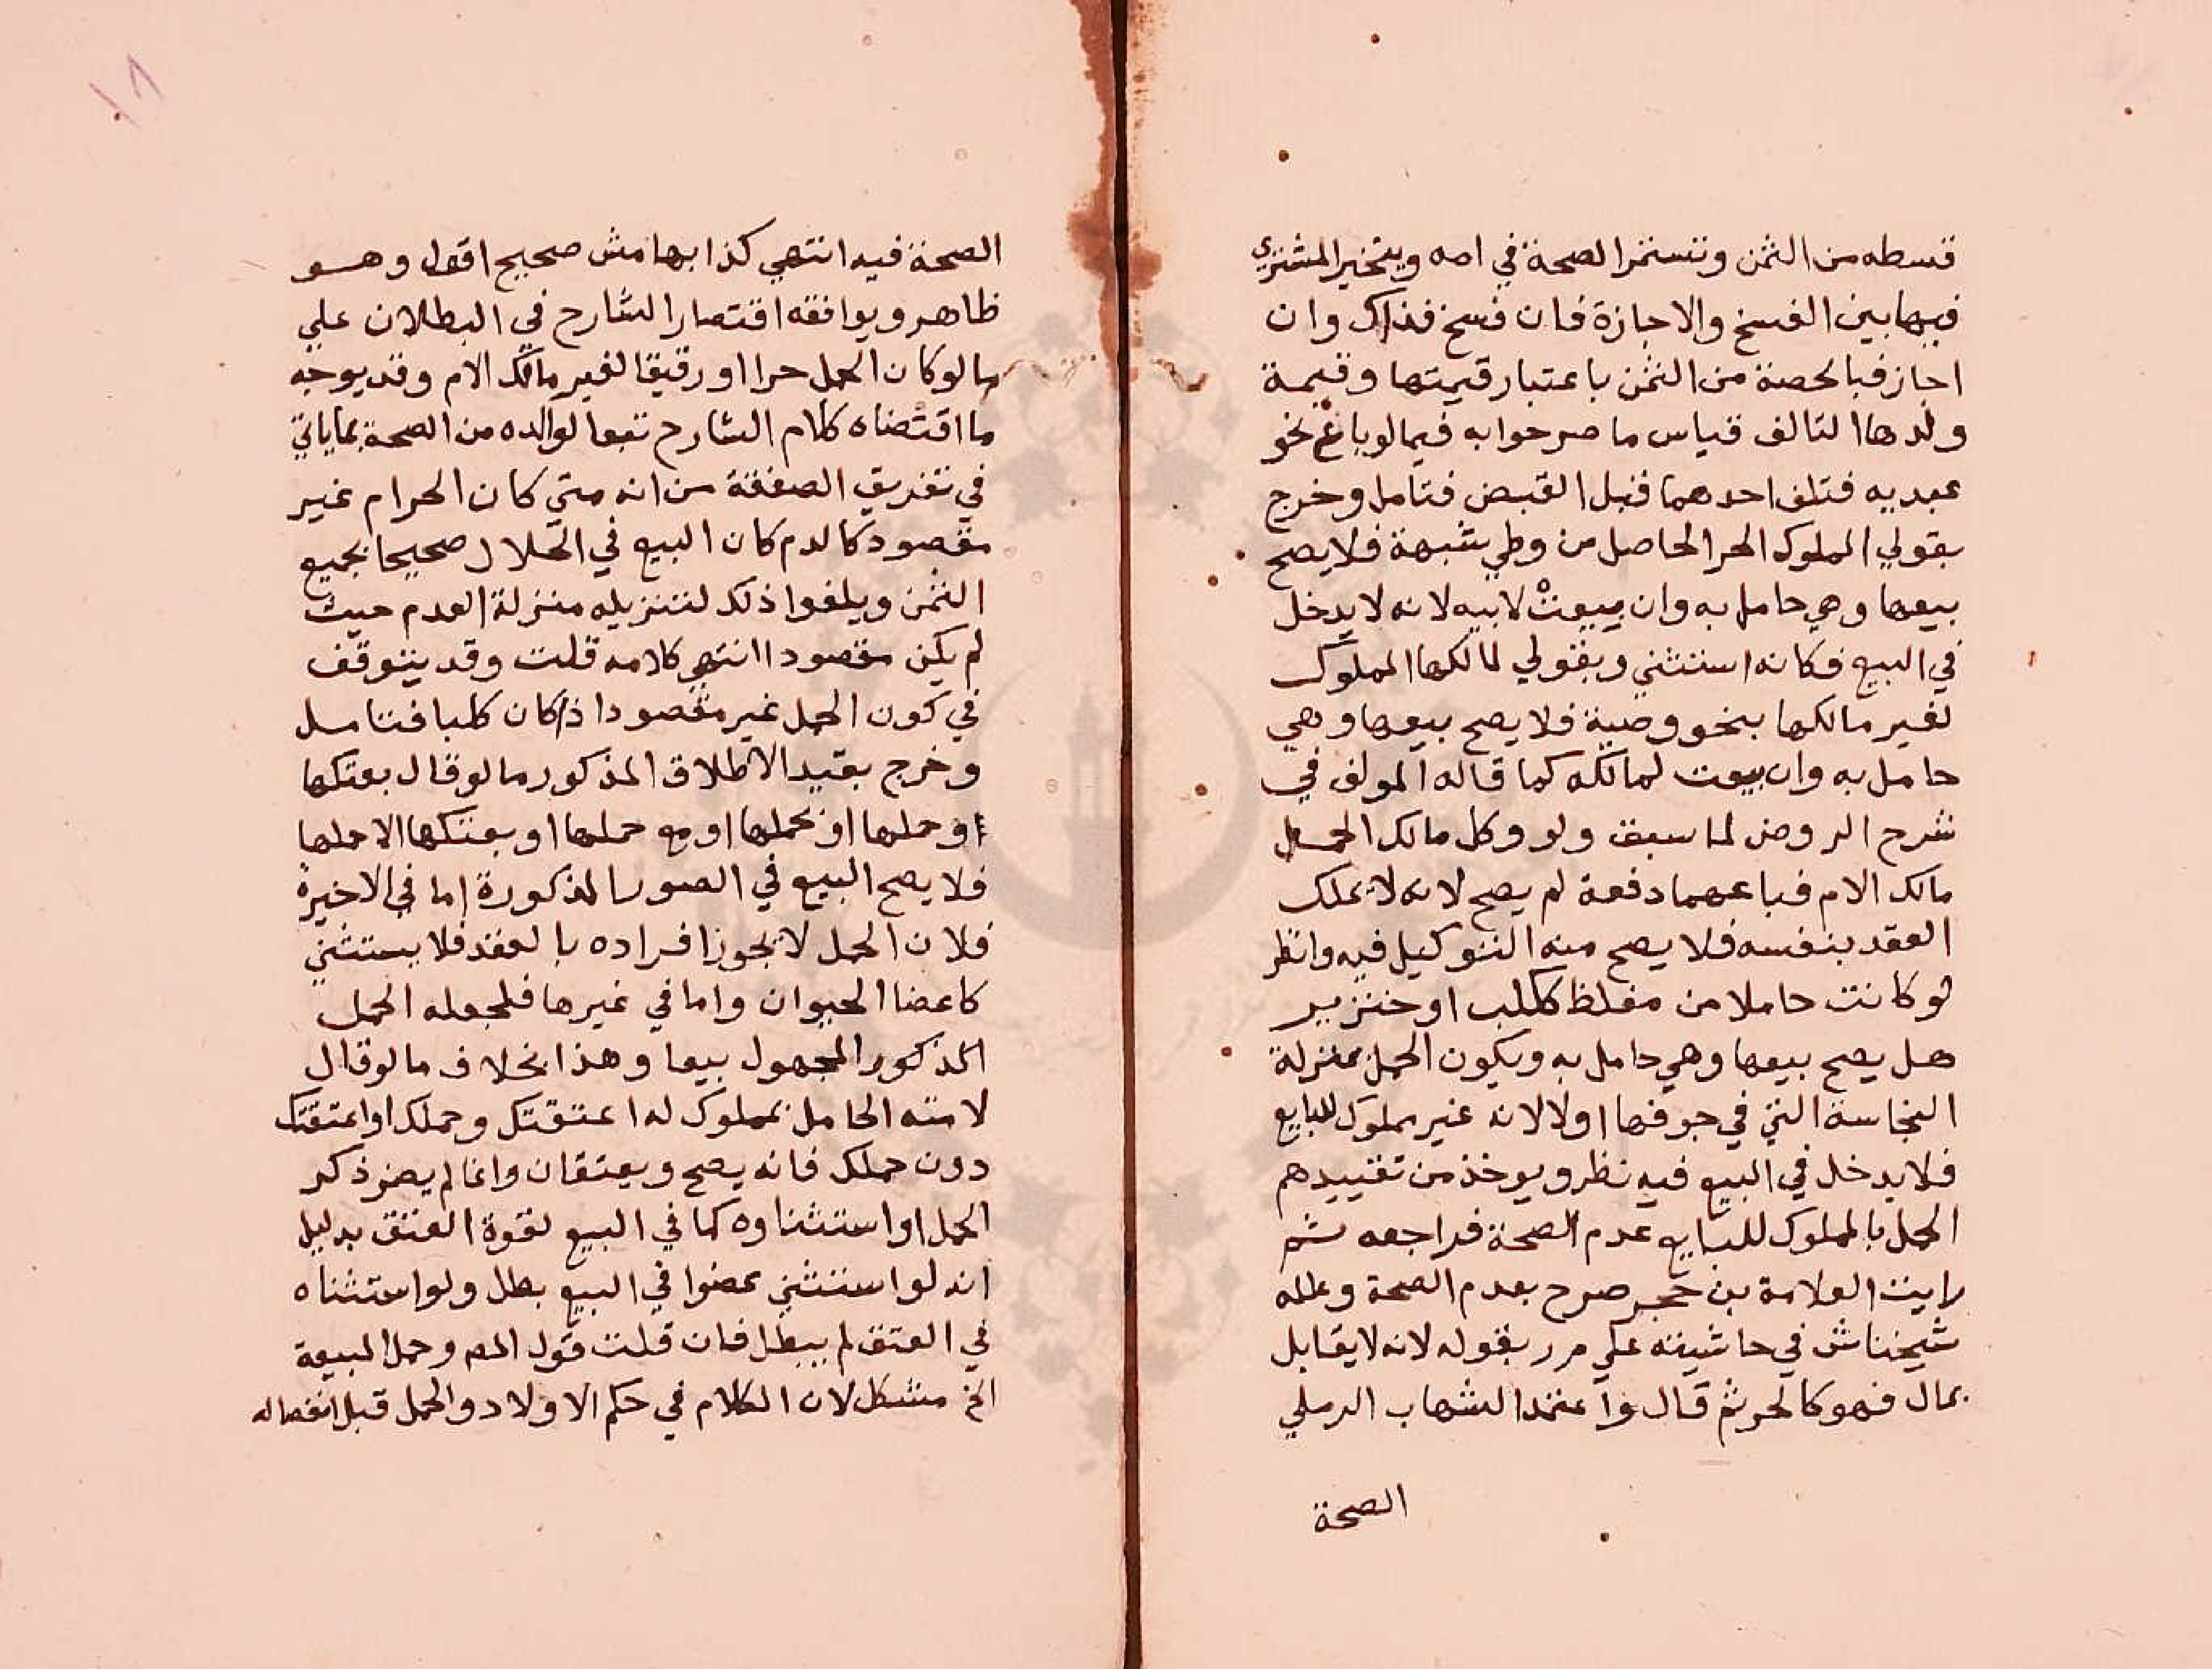 قسطه من الثمن وتستمر الصحة في امه ويتخير المشتري
فيها بين الفسخ والاجازة فان فسخ فذاك وان
اجاز فبالحصة من الثمن باعتبار قيمتها وقيمة
ولدها التالف قياس ما صرحوا به فيما لو باع نحو
عبديه فتلف احدهما قبل القبض فتامل وخرج
بقولي المملوك الحر الحاصل من وطي شبهة فلا يصح
بيعها وهي حامل به وان بيعت لابيه لانه لا يدخل
في البيع فكانه استثني وبقولي لمالكها المملوك
لغير مالكها بنحو وصية فلا يصح بيعها وهي
حامل به وان بيعت لمالكه كما قاله المولف في
شرح الروض لما سبق ولو وكل مالك الحمل
مالك الام فباعهما دفعة لم يصح لانه لا يملك
العقد بنفسه فلا يصح منه التوكيل فيه وانظر
لو كانت حاملا من مغلظ ككلب او خنزير
هل يصح بيعها وهي حامل به ويكون الحمل بمنزلة
النجاسة التي في جوفها اولا لانه غير مملوك للبايع
فلا يدخل في البيع فيه نظر ويوخذ من تقييدهم
الحمل بالمملوك للبايع عدم الصحة فراجعه ثم
رايت العلامة بن حجر صرح بعدم الصحة وعلله
شيخنا ش في حاشيته علي م ر بقوله لانه لا يقابل
بمال فهو كالحر ثم قال واعتمد الشهاب الرملي
الصحة
الصحة فيه انتهي كذا بهامش صحيح اقول وهو
ظاهر ويوافقه اقتصار الشارح في البطلان علي
ما لو كان الحمل حرا او رقيقا لغير مالك الام وقد يوجه
ما اقتضاه كلام الشارح تبعا لوالده من الصحة بما ياتي
في تفريق الصفقة من انه متي كان الحرام غير
مقصود كالدم كان البيع في الحلال صحيحا بجميع
الثمن ويلغوا ذلك لتنزيله منزلة العدم حيث
لم يكن مقصودا انتهي كلامه قلت وقد يتوقف
في كون الحمل غير مقصود اذا كان كلبا فتامل
وخرج بقيد الاطلاق المذكور ما لو قال بعتكها
او حملها او بحملها او مع حملها او بعتكها الا حملها
فلا يصح البيع في الصور المذكورة اما في الاخيرة
فلان الحمل لا يجوز افراده بالعقد فلا يستثني
كاعضا الحيوان واما في غيرها فلجعله الحمل
المذكور المجهول بيعا وهذا بخلاف ما لو قال
لامته الحامل بمملوك له اعتقتك وحملك او اعتقتك
دون حملك فانه يصح ويعتقان وانما لم يضر ذكر
الحمل او استثناوه كما في البيع لقوة العتق بدليل
انه لو استثني عضوا في البيع بطل ولو استثناه
في العتق لم يبطل فان قلت قول المص وحمل المبيعة
الخ مشكل لان الكلام في حكم الاولاد والحمل قبل انفصاله